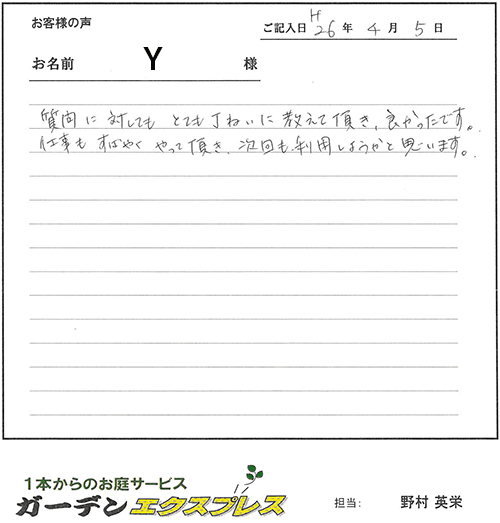 お客様の声
ご記入日 H26年 4月 5日
お名前 Y 様
質問に対しても とても丁ねいに教えて頂き、良かったです。
仕事も すばやく やって頂き、次回も利用しようかと思います。
1本からのお庭サービス
ガーデンエクスプレス
担当: 野村 英栄